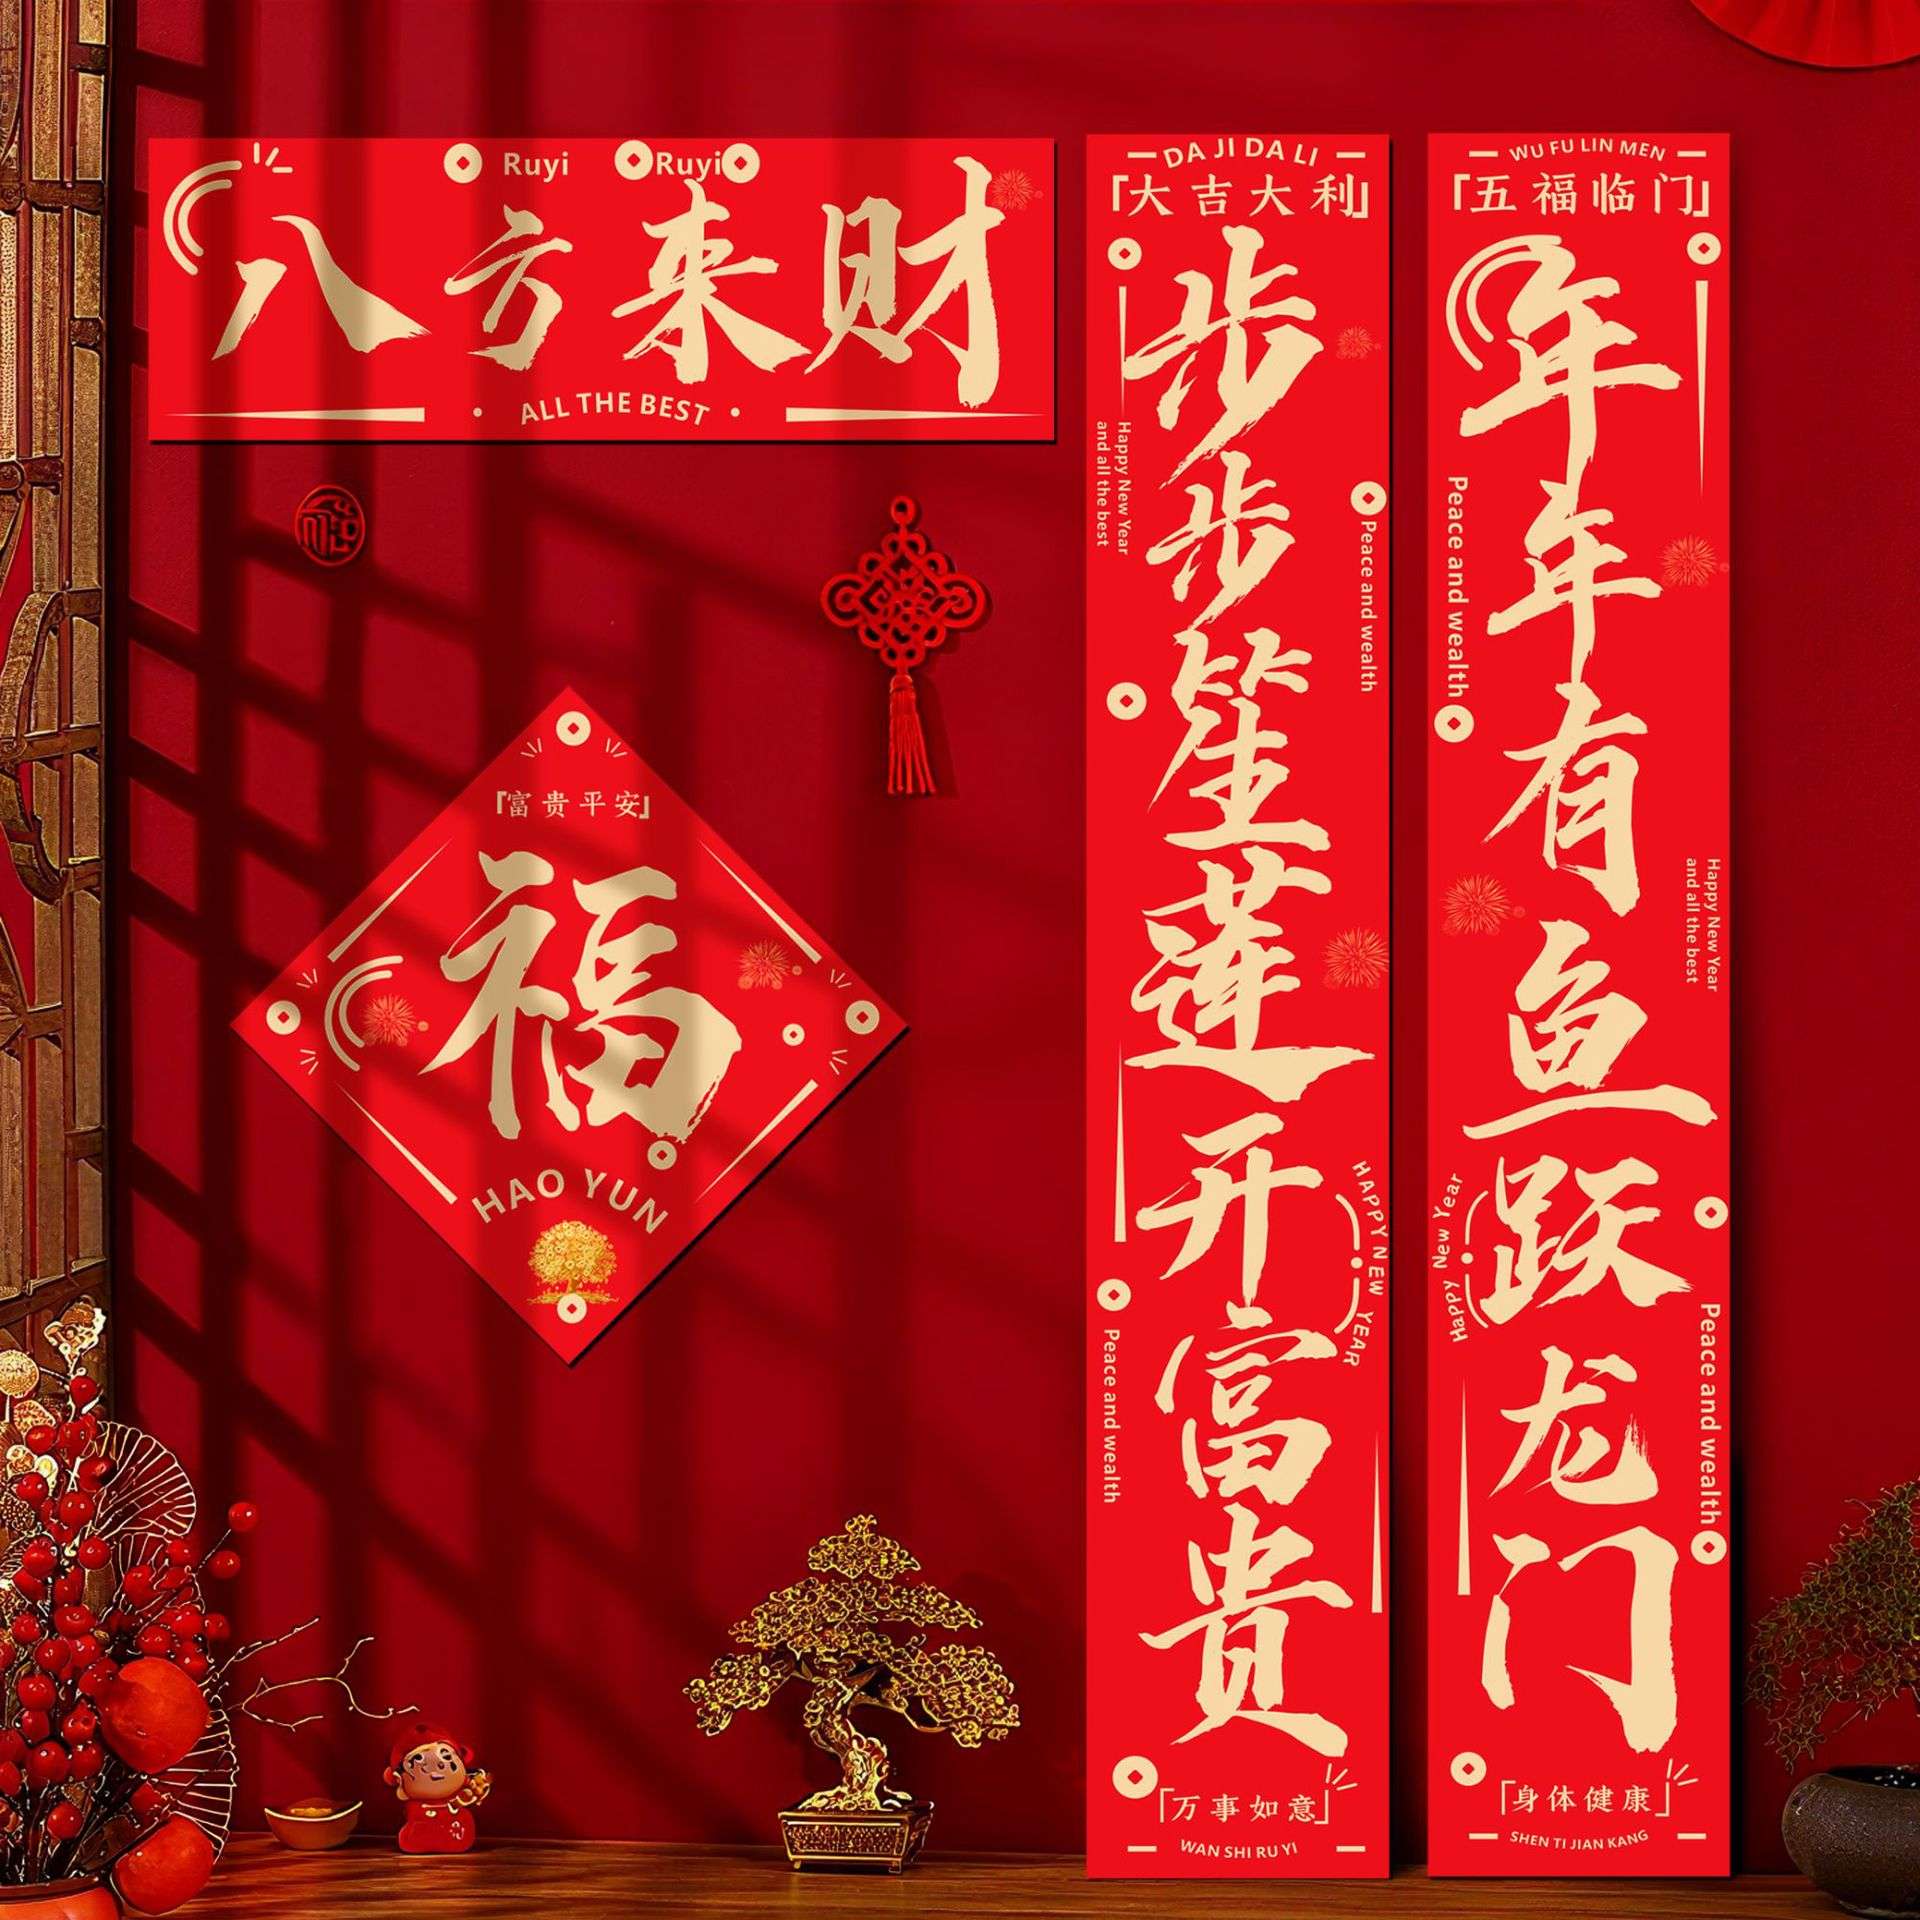 Ruyi Ruyi
八方来财
ALL THE BEST
「富贵平安」
福
HAO YUN
DA JI DA LI
「大吉大利」
步步笙莲开富贵
Happy New Year
and all the best
Peace and wealth
HAPPY NEW YEAR
Peace and wealth
「万事如意」
WAN SHI RU YI
WU FU LIN MEN
「五福临门」
年年有鱼跃龙门
Peace and wealth
Happy New Year
and all the best
Happy New Year
Peace and wealth
「身体健康」
SHEN TI JIAN KANG